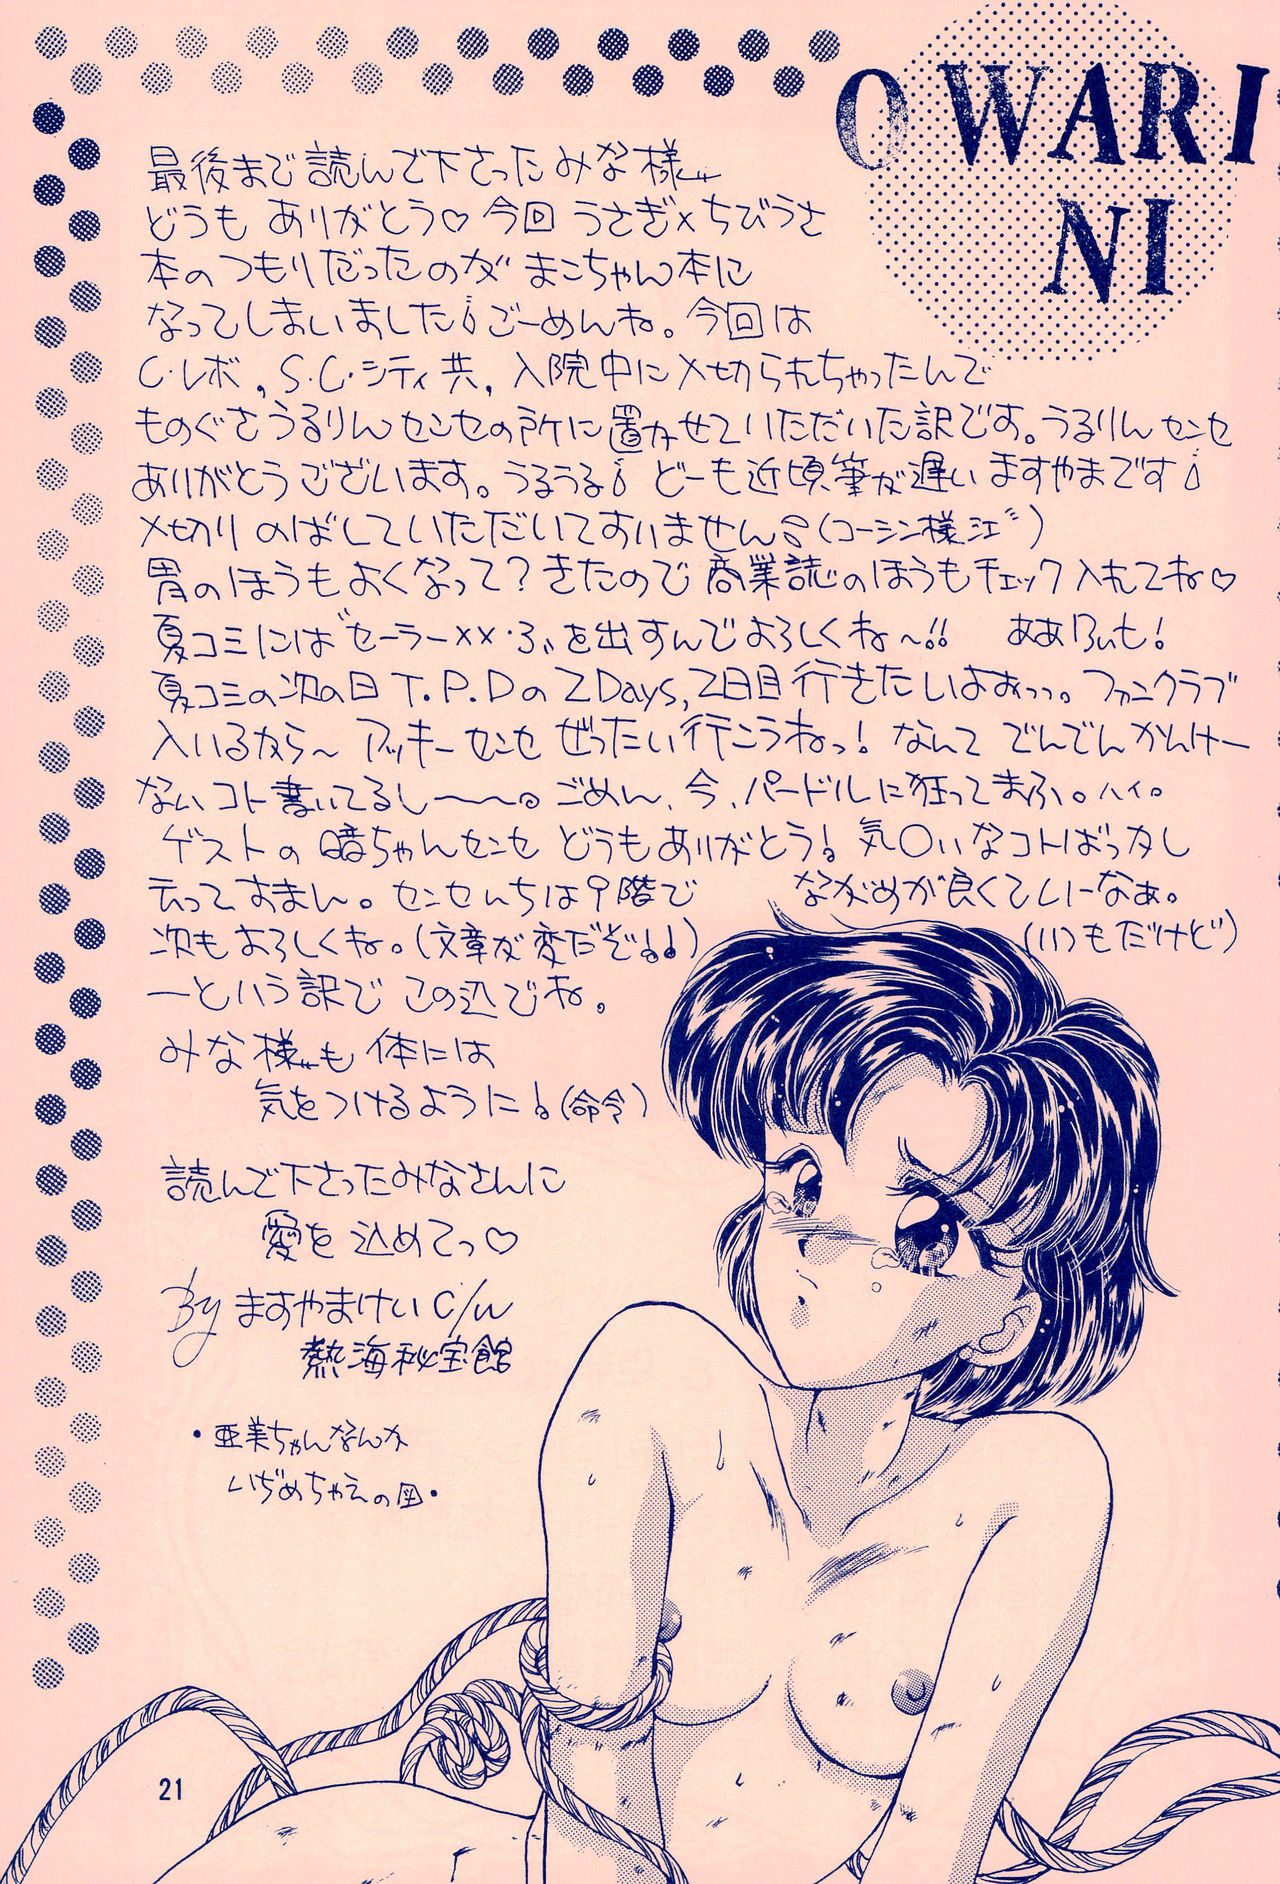 OWARI
NI
最後まで読んで下さったみな様
どうもありがとう♡今回うさぎ×ちびうさ
本のつもりだったのがまこちゃん本に
なってしまいました。ごーめんね。今回は
C・レボ,S.C.シティ共,入院中に〆切られちゃったんで
ものぐさうるりんセンセの所に置かせていただいた訳です。うるりんセンセ
ありがとうございます。うるうる どーも近頃筆が遅いますやまです
〆切りのばしていただいてすいません(コーシン様江)
胃のほうもよくなって?きたので商業誌のほうもチェック入れてね♡
夏コミには"セーラー××・ふ"を出すんでよろしくね〜!!
夏コミの次の日T.P.Dの2Days,2日目行きたいよおっっ。ファンクラブ
入いるから〜 アッキーセンセぜったい行こうねっ!なんてでんでんかんけー
ないコト書いてるし〜〜。ごめん、今、パードルに狂ってまふ。ハイ。
ゲストの暗ちゃんセンセどうもありがとう!気〇いなコトばっカし
云ってすまん。センセんちは9階で ながめが良くていーなぁ。
次もよろしくね。(文章が変だぞ!!) (いつもだけど)
ーという訳でこの辺でね。
みな様も体には
気をつけるように!(命令)
読んで下さったみなさんに
愛を込めてっ♡
By ますやまけい C/W
熱海秘宝館
・亜美ちゃんなんか
いぢめちゃえの図・
21